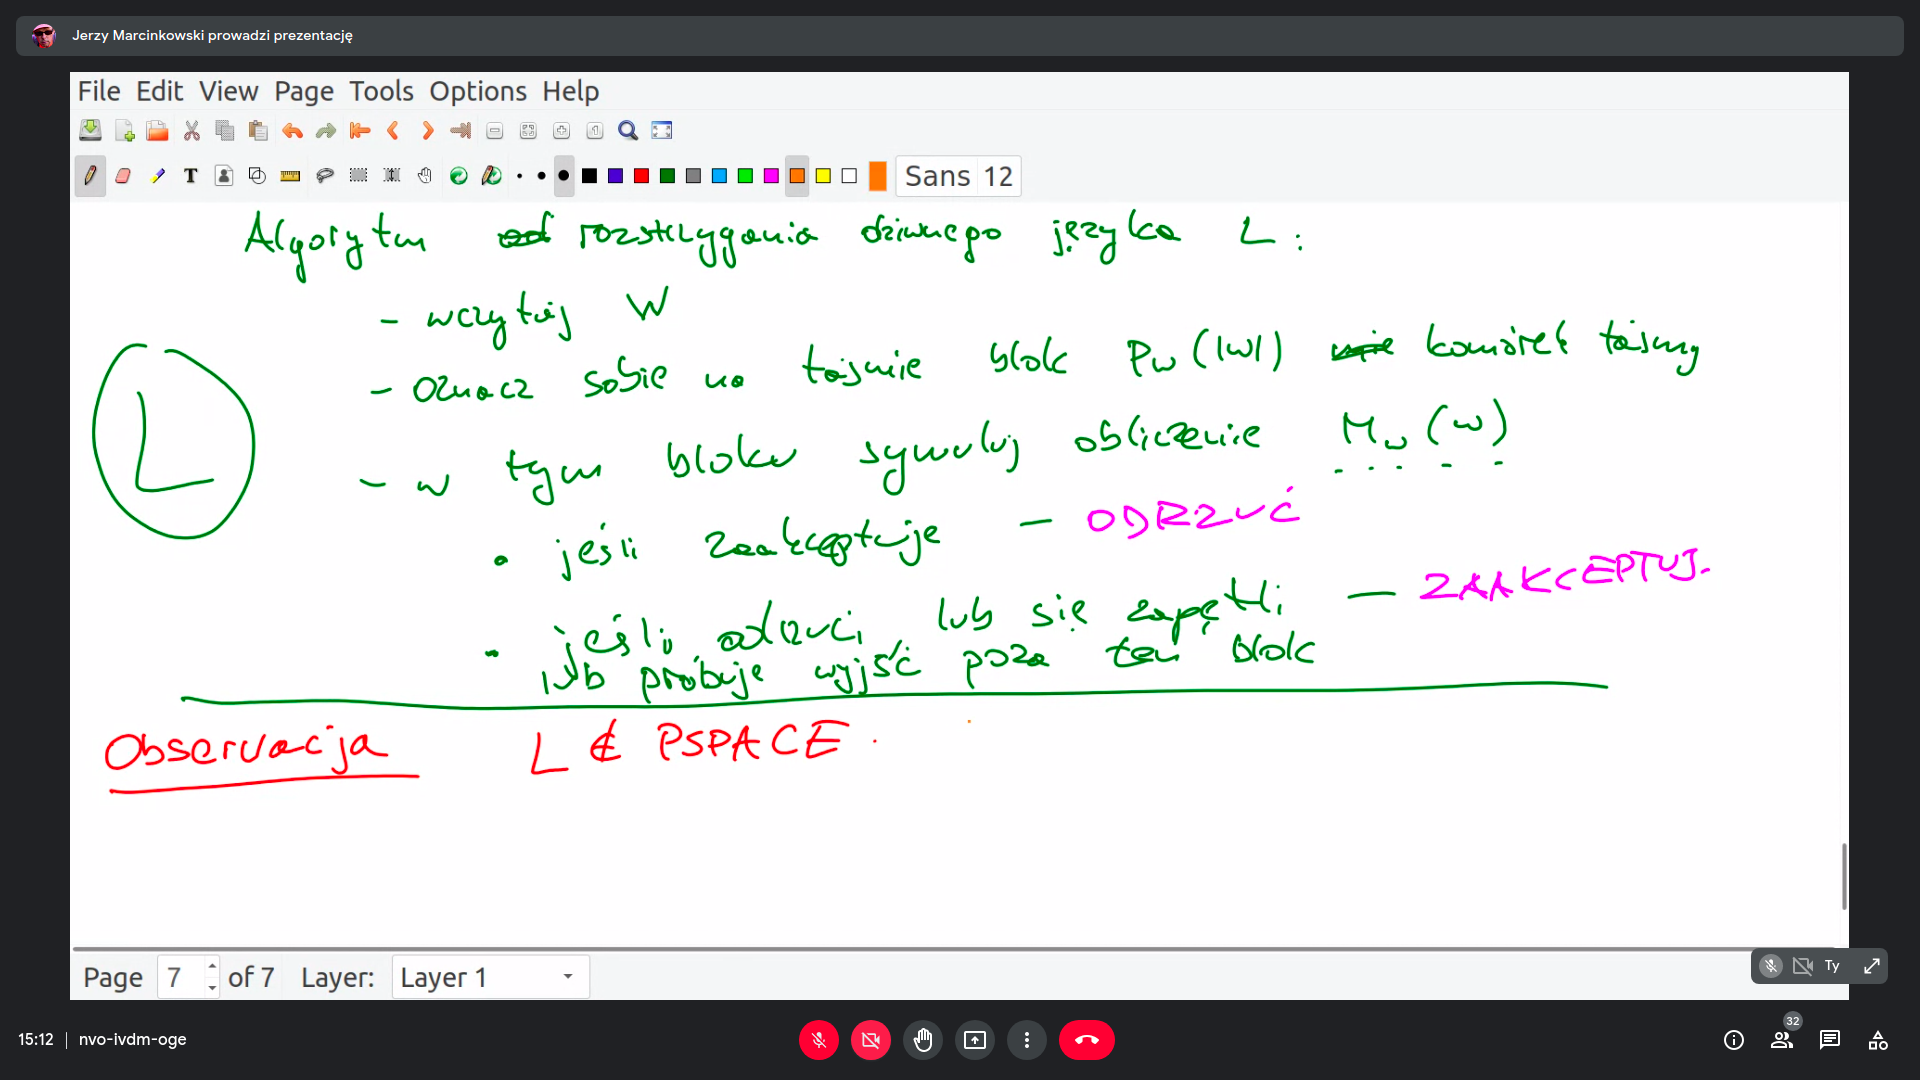 Jerzy Marcinkowski prowadzi prezentację
File Edit View Page Tools Options Help
T
Sans 12
Algorytm rozstrzygania dziwnego języka L:
- wczytaj W
- oznacz sobie na taśmie blok Pw(|w|) komórek taśmy
L
- w tym bloku symuluj obliczenie Mw(w)
• jeśli zaakceptuje - ODRZUĆ
• jeśli odrzuci lub się zapętli - ZAAKCEPTUJ.
lub próbuje wyjść poza ten blok
Observacja L ∉ PSPACE.
Page 7 of 7 Layer: Layer 1
Ty
15:12 | nvo-ivdm-oge
32